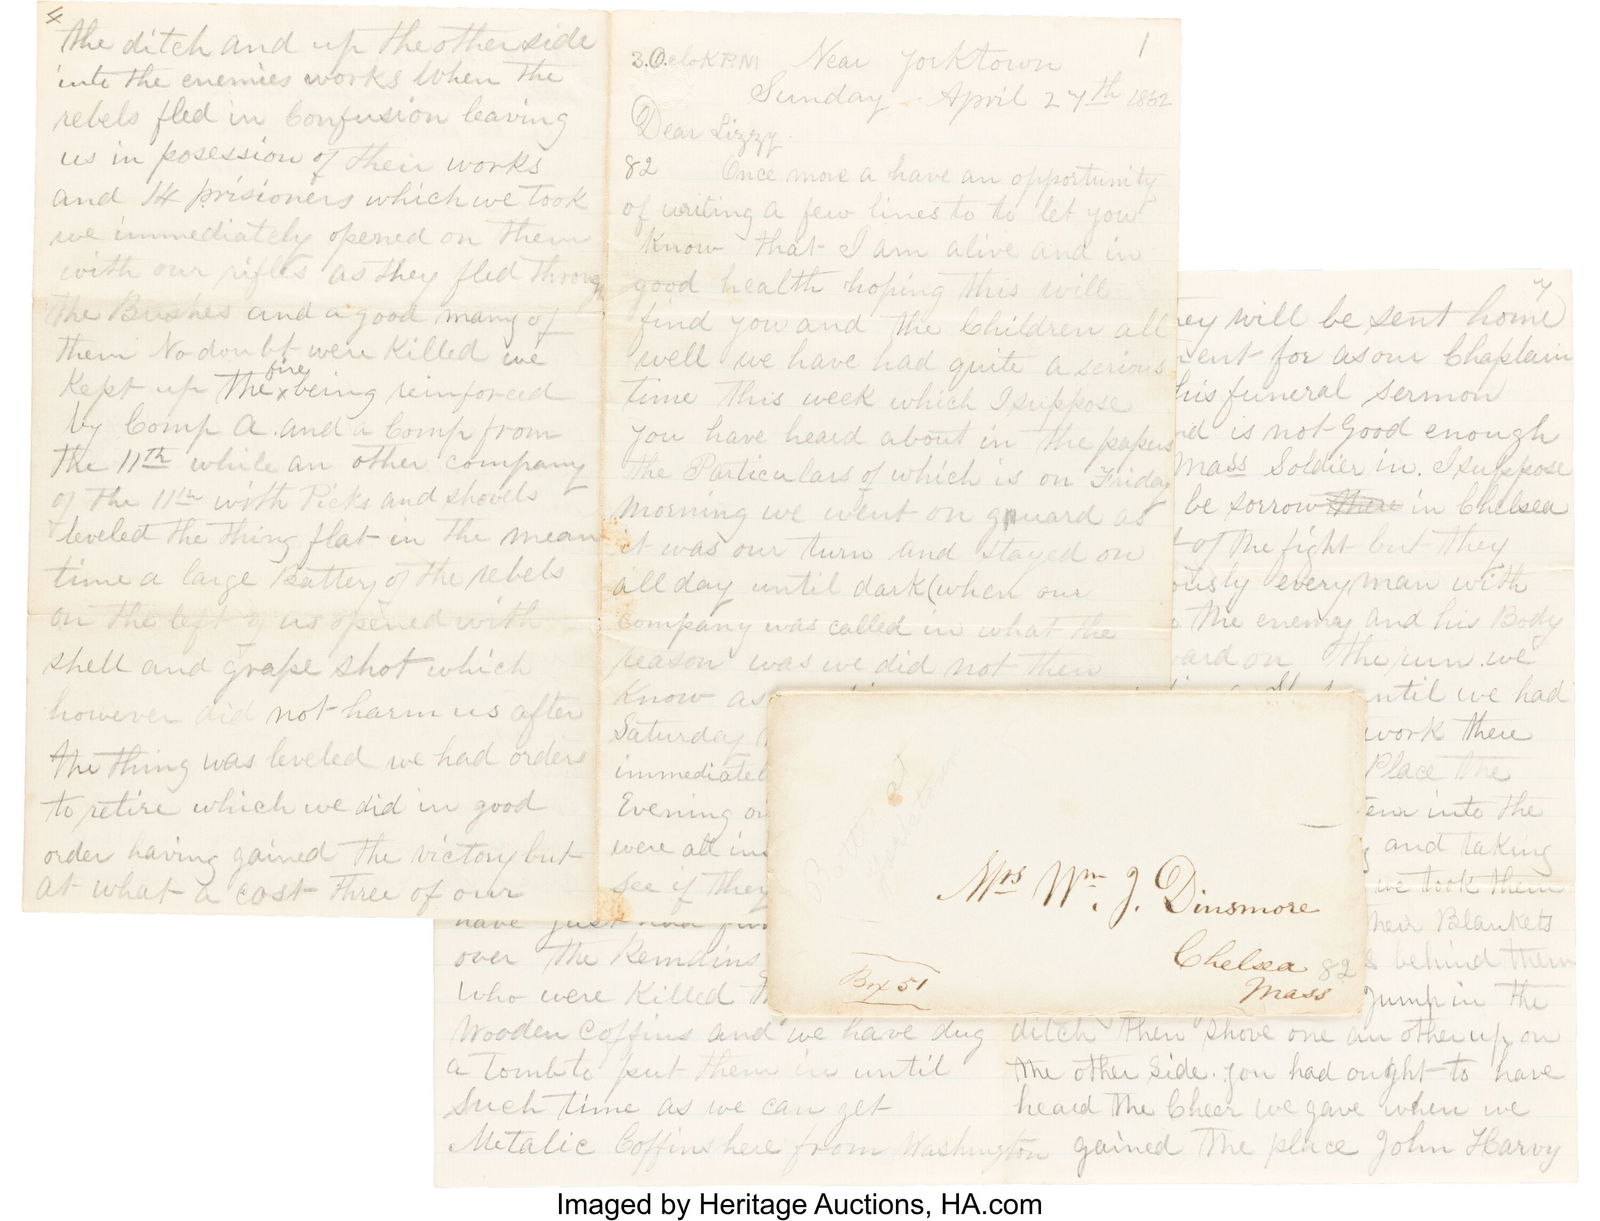 4
the ditch and up the other side
into the enemies works when the
rebels fled in Confusion leaving
us in posession of their works
and 14 prisioners which we took
we immediately opened on them
with our rifles as they fled through
the Bushes and a good many of
them No doubt were Killed we
Kept up the fire x being reinforced
by Comp A. and a Comp from
the 11th while an other company
of the 11th with Picks and shovels
leveled the thing flat in the mean
time a large Battery of the rebels
on the left of us opened with
shell and grape shot which
however did not harm us after
the thing was leveled we had orders
to retire which we did in good
order having gained the victory but
at what a cost three of our
1
3.OcloK P.M Near Yorktown
Sunday April 27th 1862
Dear Lizzy.
82 Once more a have an opportunity
of writing a few lines to to let you
Know that I am alive and in
good health hoping this will
find you and the Children all
well we have had quite a serious
time this week which I suppose
you have heard about in the papers
the Particulars of which is on Friday
morning we went on guard as
it was our turn and stayed on
all day until dark (when our
company was called in what the
reason was we did not then
Know as
Saturday
immediatel
Evening on
were all in
see if they
7
ey will be sent home
ent for as our Chaplain
his funeral sermon
nd is not Good enough
Mass Soldier in. I suppose
be sorrow in Chelsea
of the fight but they
ously every man with
the enemy and his Body
ward on the run. we
until we had
work there
Place the
into the
and taking
we took them
their Blankets
behind them
Jump in the
ditch then shove one an other up on
the other side. you had ought to have
heard the Cheer we gave when we
gained the place John Harvy
have just
over the Remains
who were Killed
Wooden Coffins and we have dug
a tomb to put them in until
such time as we can get
Metalic Coffins here from Washington
Battle of
Yorktown
Mrs Wm. J. Dinsmore
Chelsea 82
Mass
Box 51
Imaged by Heritage Auctions, HA.com